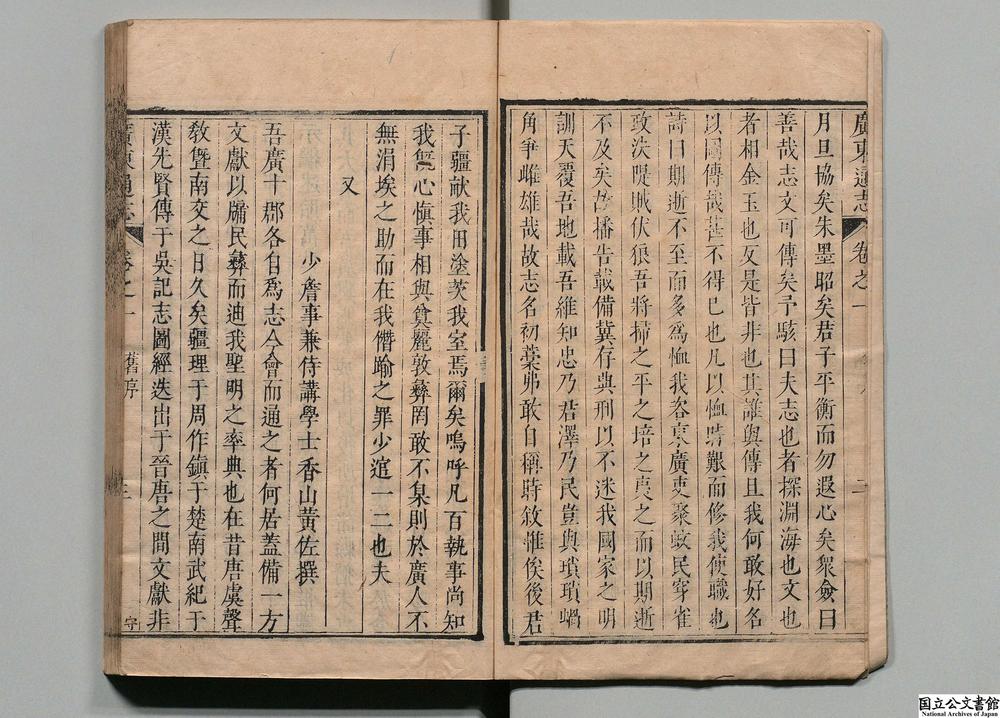 廣東通志 卷之一 二
月旦協矣朱墨昭矣君子平衡而勿遐心矣衆僉曰
善哉志文可傳矣予駭曰夫志也者探淵海也文也
者相金玉也反是皆非也其誰與傳且我何敢好名
以圖傳哉葢不得已也凡以恤時艱而修我使職也
詩曰期逝不至而多為恤我咨東廣吏聚蚊民穿雀
政泆隄賊伏狼吾將掃之平之培之
不及矣播告載備冀存典刑以不迷我國家之明
訓天覆吾地載吾維知忠乃君澤乃民豈與瑣瑣蝸
角爭雌雄哉故志名初藁弗敢自稱時敘惟俟後君
子疆畝我田塗茨我室焉爾矣嗚呼凡百執事尚知
我慇心愼事相與奠麗敦彝罔敢不臬則於廣人不
無涓埃之助而在我僭踰之罪少逭一二也夫
又
少詹事兼侍講學士香山黃佐撰
吾廣十郡各自為志今會而通之者何居蓋備一方
文獻以牖民彝而迪我聖明之率典也在昔唐虞聲
敎暨南交之日久矣疆理于周作鎭于楚南武紀于
漢先賢傳于吳記志圖經迭出于晉唐之間文獻非
廣東通志 卷之一 舊序 三 字
国立公文書館
National Archives of Japan